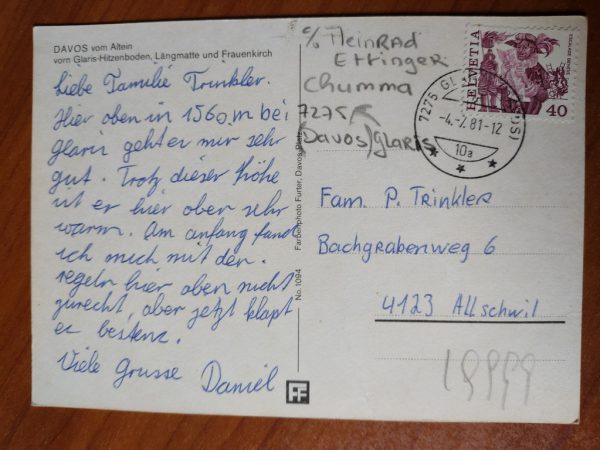 DAVOS vom Altein
vom Glaris-Hitzenboden, Längmatte und Frauenkirch
Liebe Familie Trinkler.
Hier oben in 1560 m bei
Glaris geht er mir sehr
gut. Trotz dieser Höhe
ist er hier ober sehr
warm. Am anfang fand
ich mich mit den
regeln hier oben nicht
zurecht, aber jetzt klapt
es bestens.
Viele Grusse Daniel
No. 1094 Farbenphoto Furter, Davos Platz
FF
c/o Meinrad
Ettinger
Chumma
7275
Davos/Glaris
7275 GL
-4.-7.81-12
10a
HELVETIA
40
Fam. P. Trinkler
Bachgrabenweg 6
4123 Allschwil